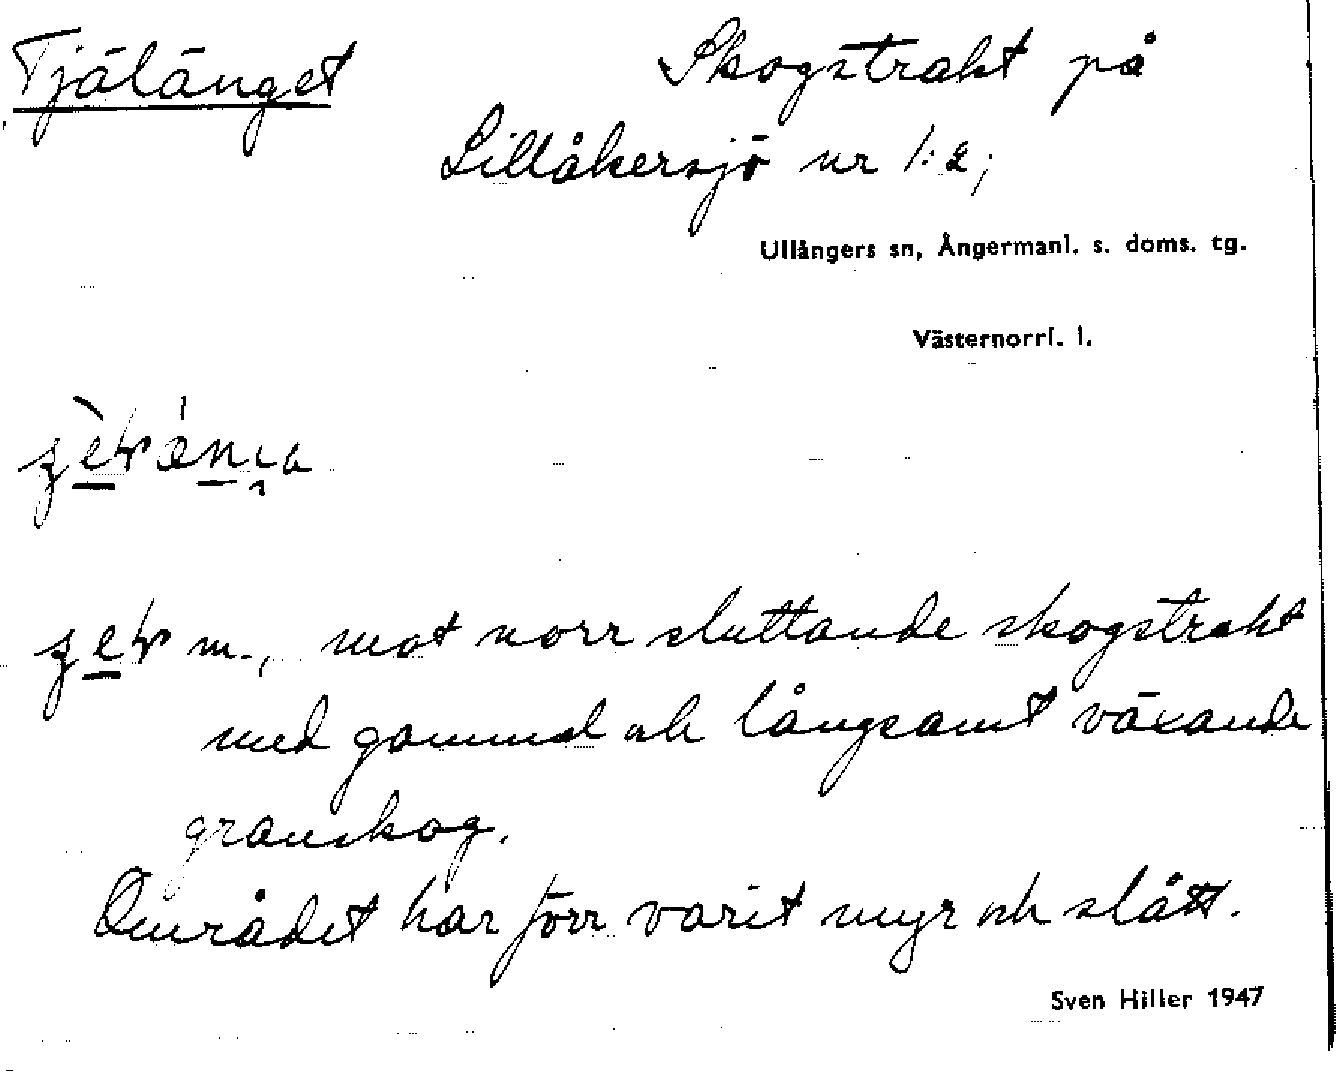 Tjälänget
Skogstrakt på
Lillåkersjö nr 1:2;
Ullångers sn, Ångermanl. s. doms. tg.
Västernorrl. l.
m., mot norr sluttande skogstrakt
med gammal och långsamt växande
granskog.
Området har förr varit myr och slått.
Sven Hiller 1947